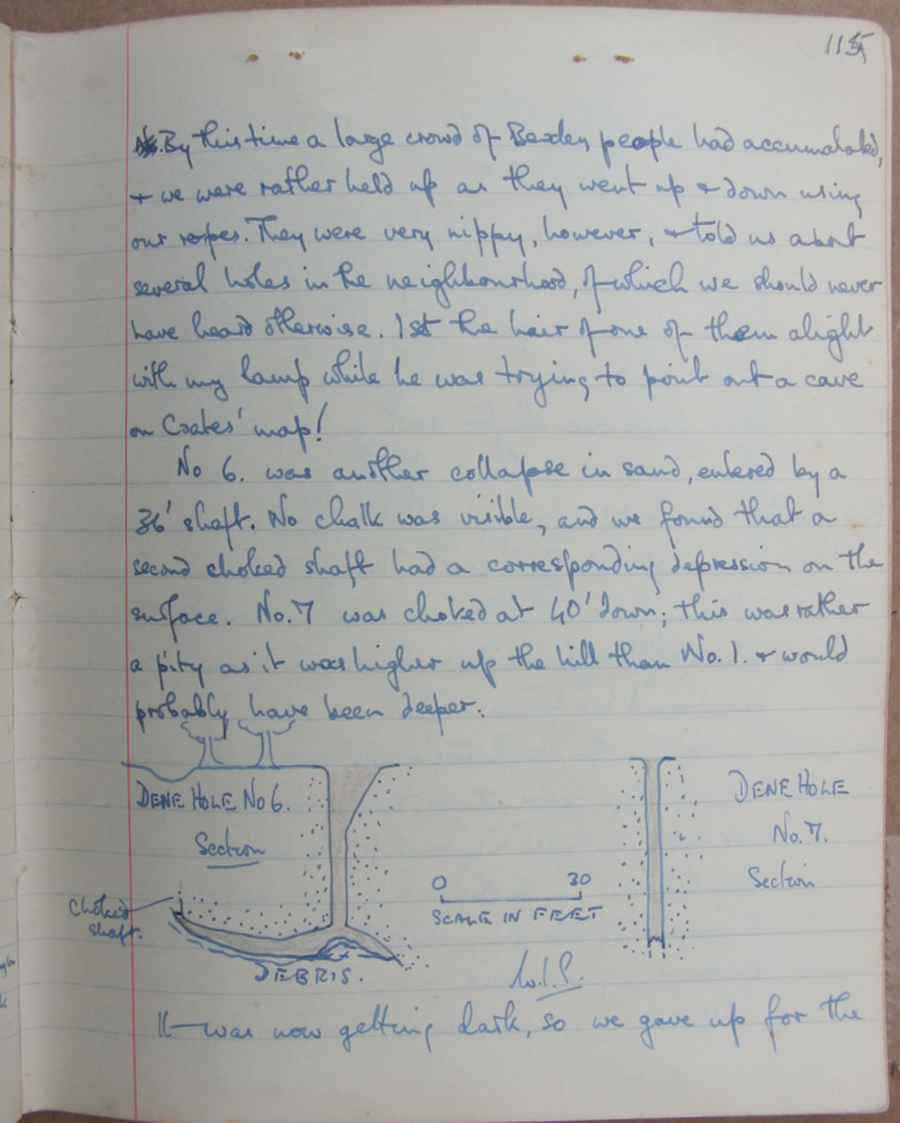 115
By this time a large crowd of Bexley people had accumulated,
+ we were rather held up as they went up + down using
our ropes. They were very nippy, however, + told us about
several holes in the neighbourhood, of which we should never
have heard otherwise. I set the hair of one of them alight
with my lamp while he was trying to point out a cave
on Coates' map!
No 6. was another collapse in sand, entered by a
36' shaft. No chalk was visible, and we found that a
second choked shaft had a corresponding depression on the
surface. No. 7 was choked at 40' down; this was rather
a pity as it was higher up the hill than No. 1. + would
probably have been deeper.
DENE HOLE No 6.
Section
Choked
shaft.
DEBRIS.
0 30
SCALE IN FEET
DENE HOLE
No. 7.
Section
It was now getting dark, so we gave up for the